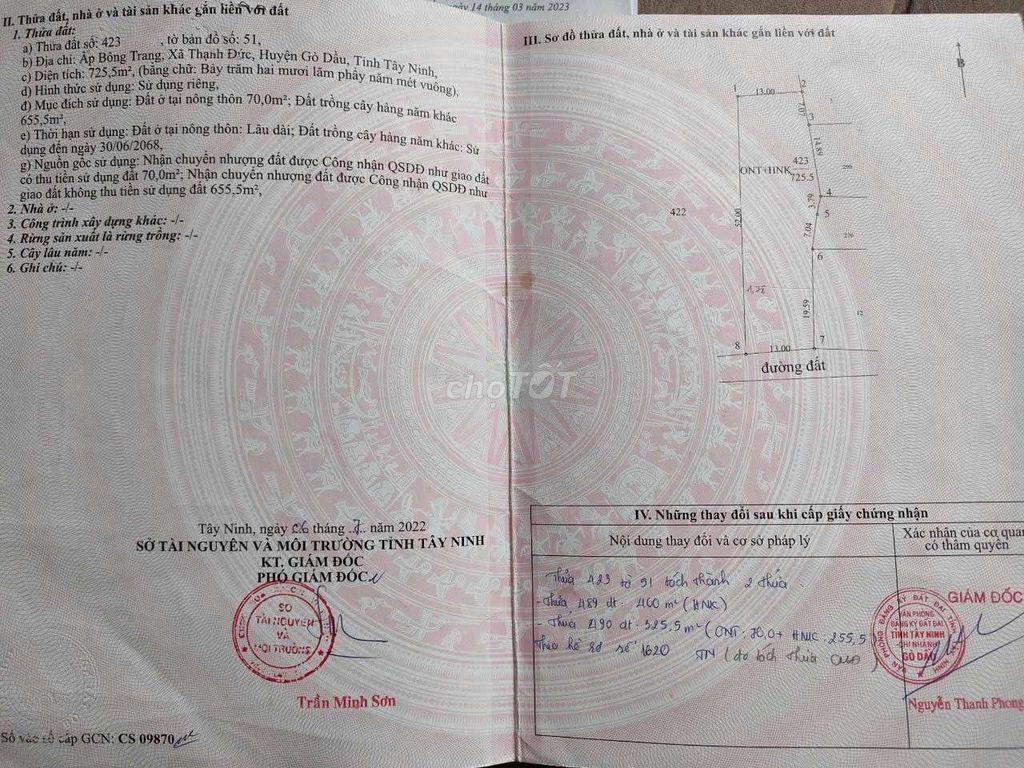 ngày 14 tháng 03 năm 2023
II. Thửa đất, nhà ở và tài sản khác gắn liền với đất
1. Thửa đất:
a) Thửa đất số: 423 , tờ bản đồ số: 51,
b) Địa chỉ: Ấp Bông Trang, Xã Thạnh Đức, Huyện Gò Dầu, Tỉnh Tây Ninh,
c) Diện tích: 725,5m², (bằng chữ: Bảy trăm hai mươi lăm phẩy năm mét vuông),
d) Hình thức sử dụng: Sử dụng riêng,
đ) Mục đích sử dụng: Đất ở tại nông thôn 70,0m²; Đất trồng cây hàng năm khác
655,5m²,
e) Thời hạn sử dụng: Đất ở tại nông thôn: Lâu dài; Đất trồng cây hàng năm khác: Sử
dụng đến ngày 30/06/2068,
g) Nguồn gốc sử dụng: Nhận chuyển nhượng đất được Công nhận QSDĐ như giao đất
có thu tiền sử dụng đất 70,0m²; Nhận chuyển nhượng đất được Công nhận QSDĐ như
giao đất không thu tiền sử dụng đất 655,5m²,
2. Nhà ở: -/-
3. Công trình xây dựng khác: -/-
4. Rừng sản xuất là rừng trồng: -/-
5. Cây lâu năm: -/-
6. Ghi chú: -/-
Tây Ninh, ngày 06 tháng 7 năm 2022
SỞ TÀI NGUYÊN VÀ MÔI TRƯỜNG TỈNH TÂY NINH
KT. GIÁM ĐỐC
PHÓ GIÁM ĐỐC
SỞ
TÀI NGUYÊN
VÀ
MÔI TRƯỜNG
Trần Minh Sơn
Số vào sổ cấp GCN: CS 09870
III. Sơ đồ thửa đất, nhà ở và tài sản khác gắn liền với đất
B
1
13.00
2
7.07
3
14.89
ONT+HNK
423
725.5
299
4
3.79
5
422
52.00
7.04
226
6
19.59
12
8
13.00
7
đường đất
chợTỐT
IV. Những thay đổi sau khi cấp giấy chứng nhận
Nội dung thay đổi và cơ sở pháp lý
Xác nhận của cơ quan
có thẩm quyền
Thửa 423 tờ 51 tách thành 2 thửa.
- Thửa 489 dt: 400 m² (HNK)
- Thửa 490 dt: 325,5 m² (ONT: 70,0 + HNK: 255,5)
Theo hồ sơ số 1620 TN (do tách thửa
GIÁM ĐỐC
VĂN PHÒNG
ĐĂNG KÝ ĐẤT ĐAI
TỈNH TÂY NINH
CHI NHÁNH
GÒ DẦU
Nguyễn Thanh Phong